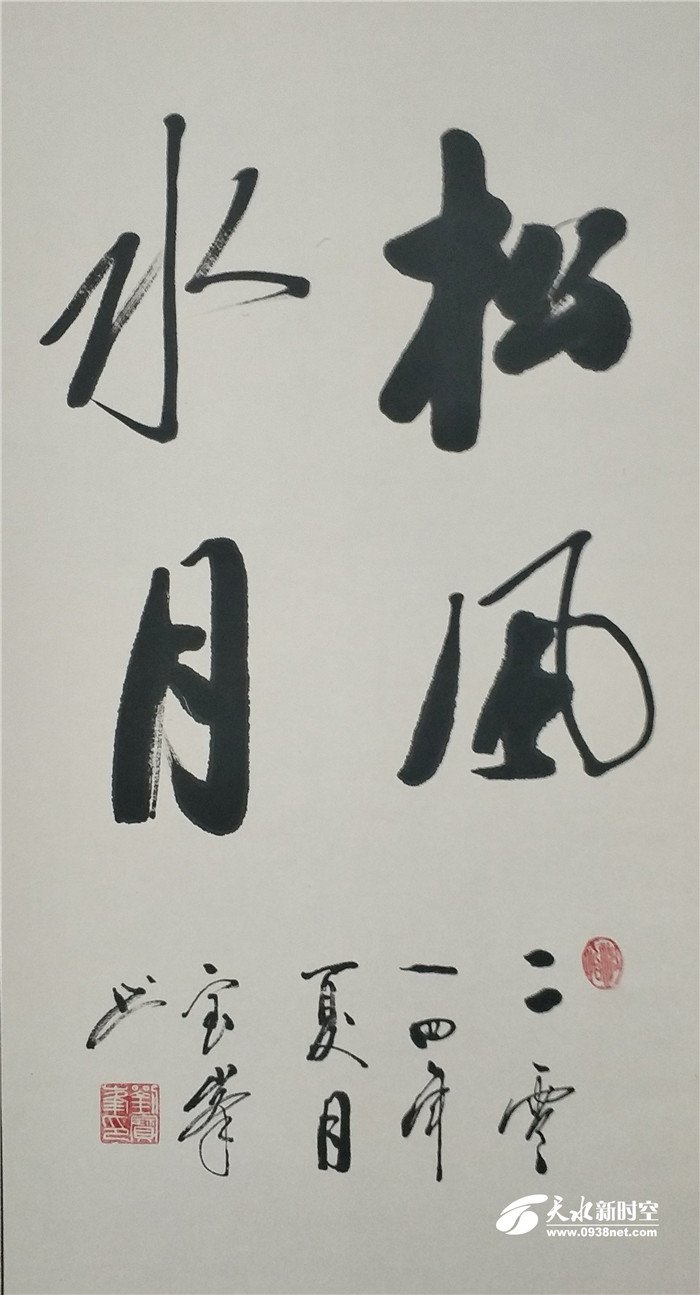 松风
水月
二零
一四年
夏月
宝峯
书
天水新时空
www.0938net.com